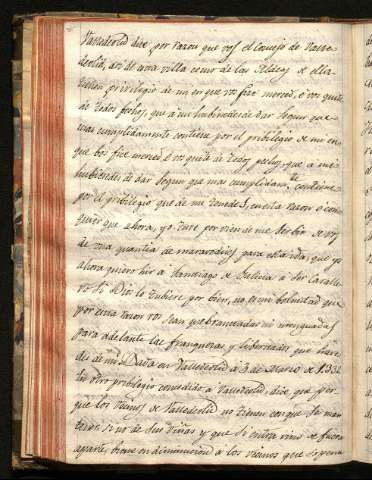 Valladolid dize, por razon que vos el Conzejo de Valla-
dolid, asi de una villa como de las Aldeas de ella
teneis privilegio de mi en que vos fize merced, e vos quité
de todos pechos, que à mi hubiéredes de dar segun que
mas cumplidamente contiene por el pribilegio de mi en
que bos fize merced e vos quité de todos pechos, que a mi
hubiéredes de dar segun que mas cumplidam.te contiene
por el pribilegio que de mi tenedes, en esta razon è como
quier que ahora, yo tube por vien de me serbir de vos
de una quantia de maravedises para esta ida, que yo
ahora quiero hir a Santiago de Galicia à ser Cavalle-
ro si Dios lo tubiere por bien, no es mi boluntad que
por esta razon vos sean quebrantadas ni menguadas
para adelante las franquezas y libertades que havedes
des de mi. Dada en Valladolid à 3 de Marzo de 1332
En otro privilegio conzedido à Valladolid, dize, que por-
que los vezinos de Valladolid no tienen con que se man-
tener si no de sus Viñas y que si entra vino de fuera
aparte, biene en diminucion a los vecinos que se pierda